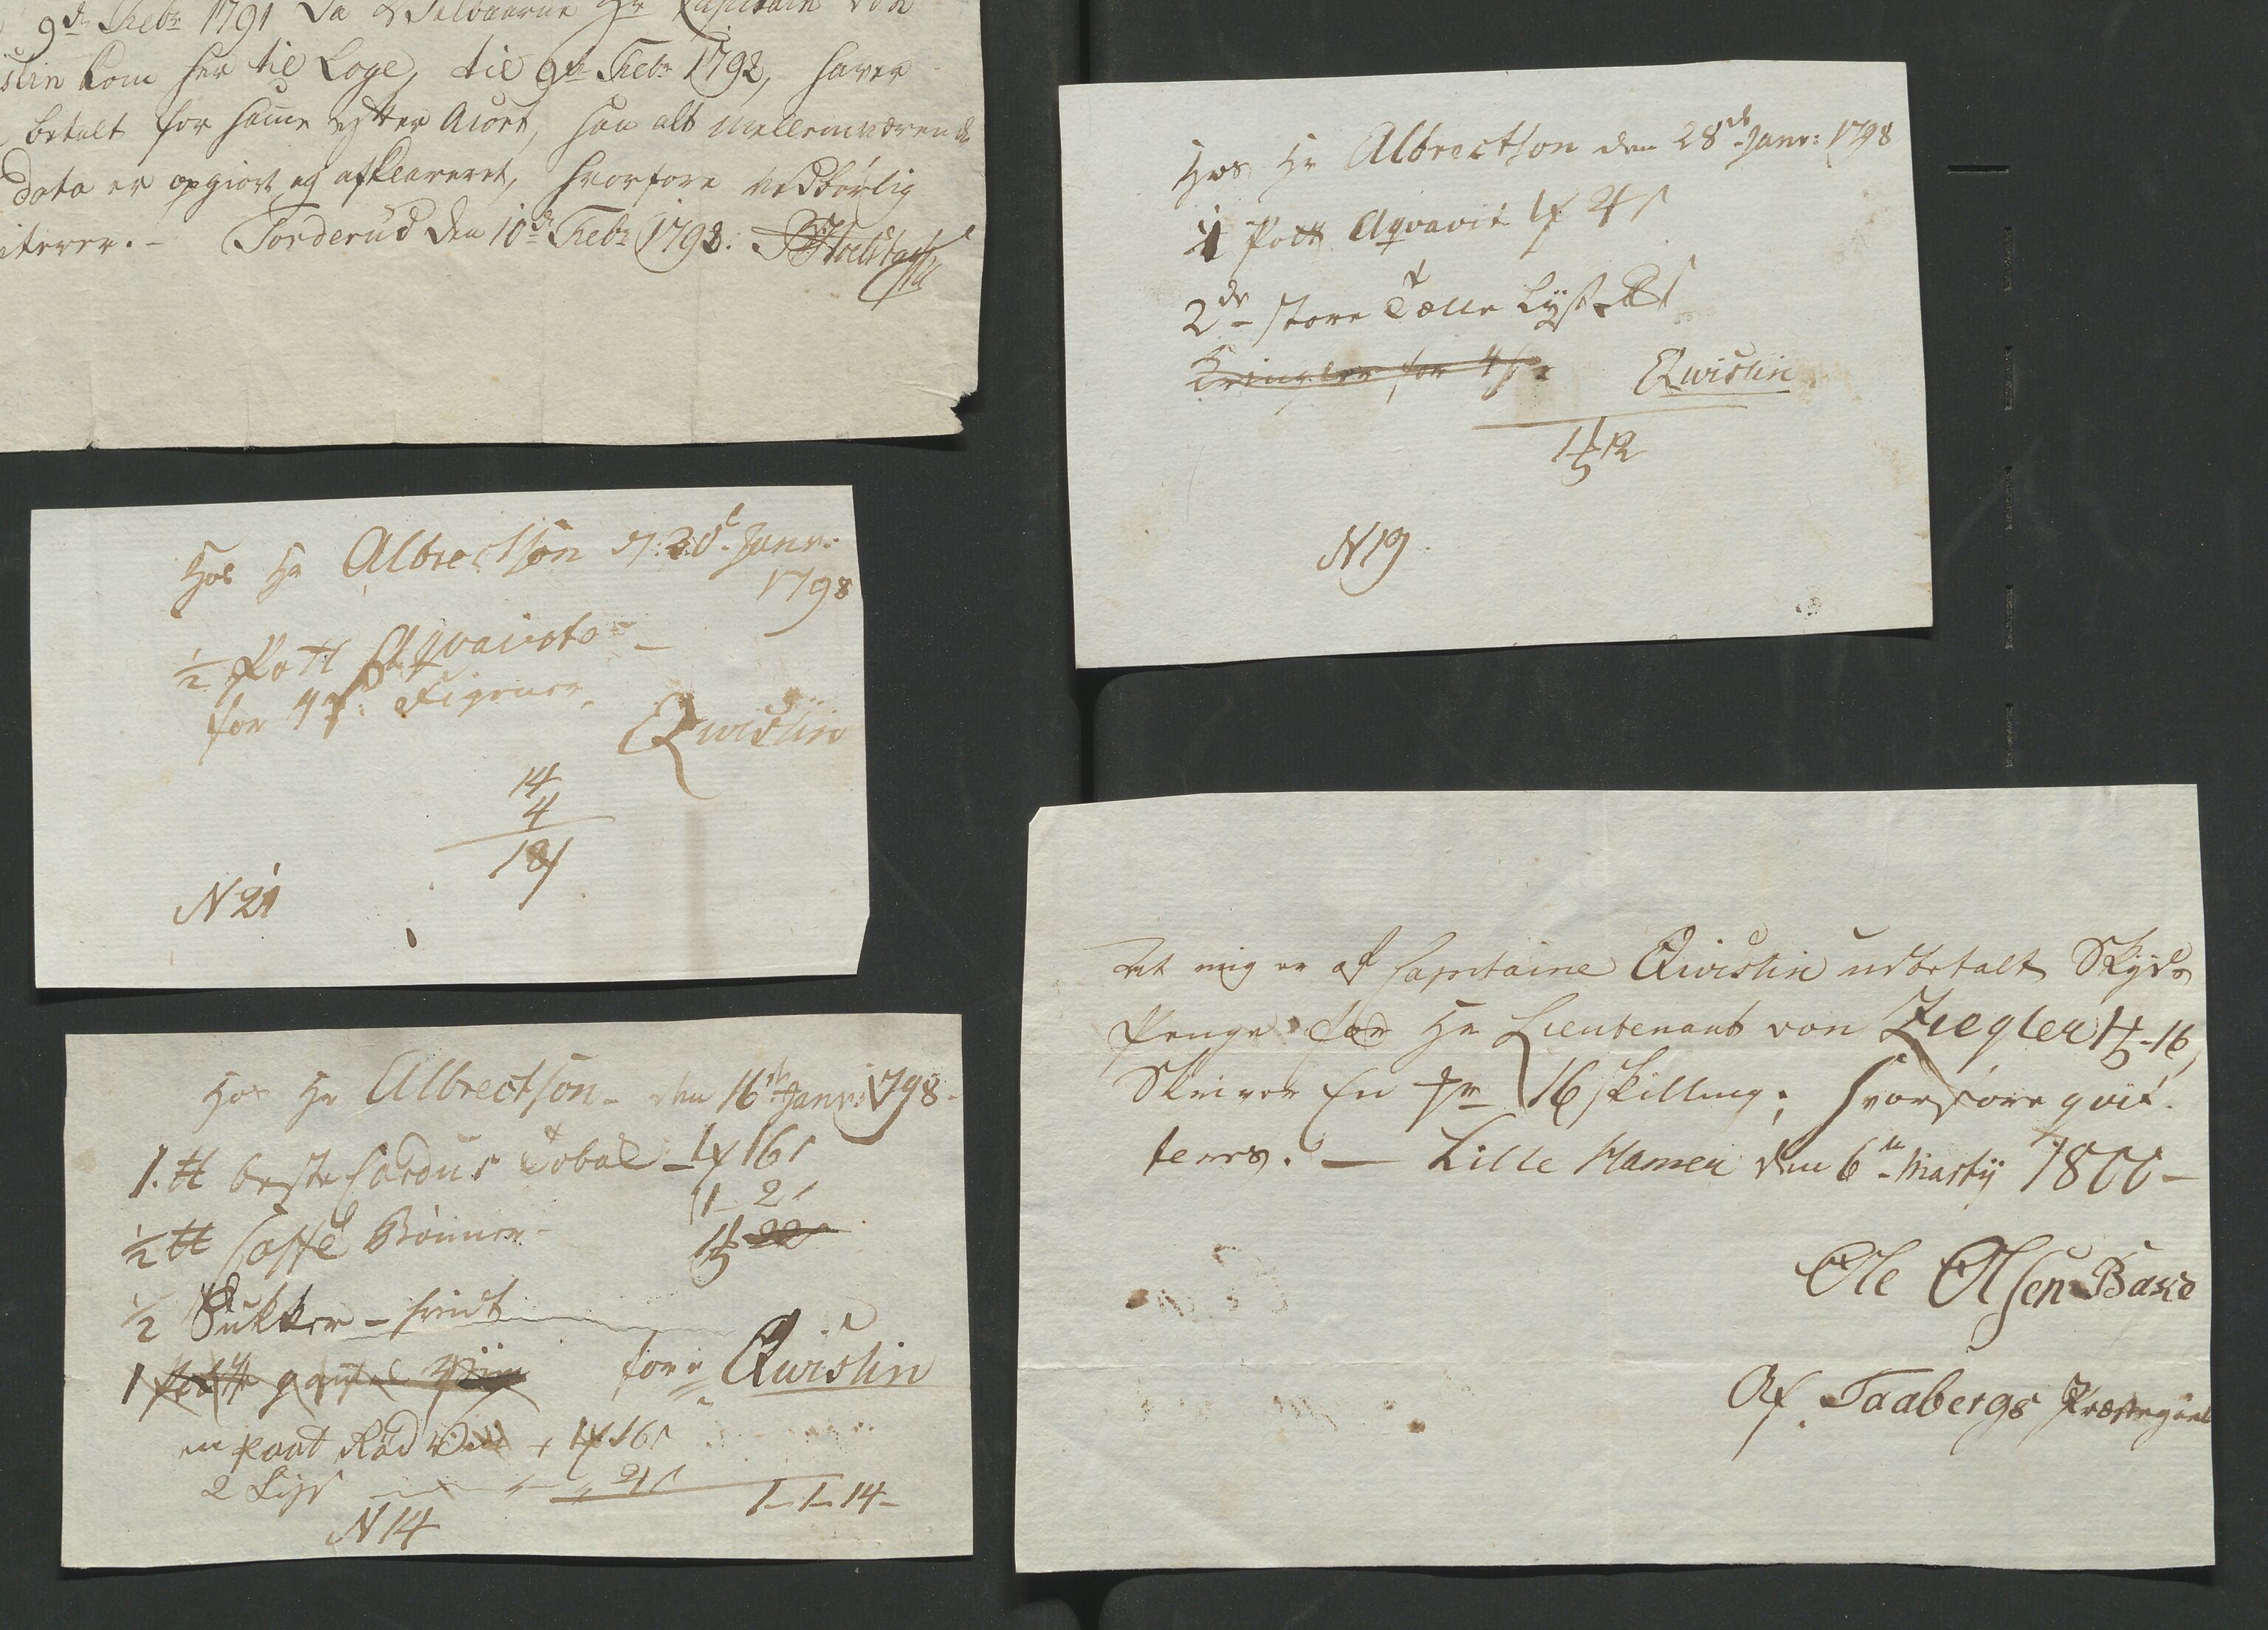 9de Febr 1791 da Velbaarne Hr Kapitain von
slin kom her til Loge, til 9de Febr 1792, haver
betalt for samme efter Acort, saa alt mellemværende
dato er opgiort og afkleareret, hvorfore vedbørlig
iterer. - Torderud den 10de Febr 1792.
Hos Hr Albrectson den 28de Janv: 1798
1 Pott Aqvavit
2de store Tælle Lys
Kringler for 4s
Qwislin
12
N 19
Hos Hr Albrectson d: 20d. Janv:
1798
1/2 Pott Aqvavito
for 4s. Figener
Qwislin
14
4
18s
N 21
Hos Hr Albrectson - den 16de Janv: 1798 -
1. tt beste Cardus Tobak - 16s
1 - 2s
1/2 tt Caffe Bønner -
22
1/2 Sukker - hvidt
1
fore Qwislin
en Paat Rød Viin 16s
2 Lys
1-1-14-
N 14
At mig er af Capitaine Qwislin udbetalt Skyds
Penge for Hr Lieutenant von Ziegler 1 - 16
Skriver En 16 skilling; hvorfore qvit-
teres. - Lille Hamer den 6te Martij 1800 -
Ole Olsen
Af Faabergs Præstegield